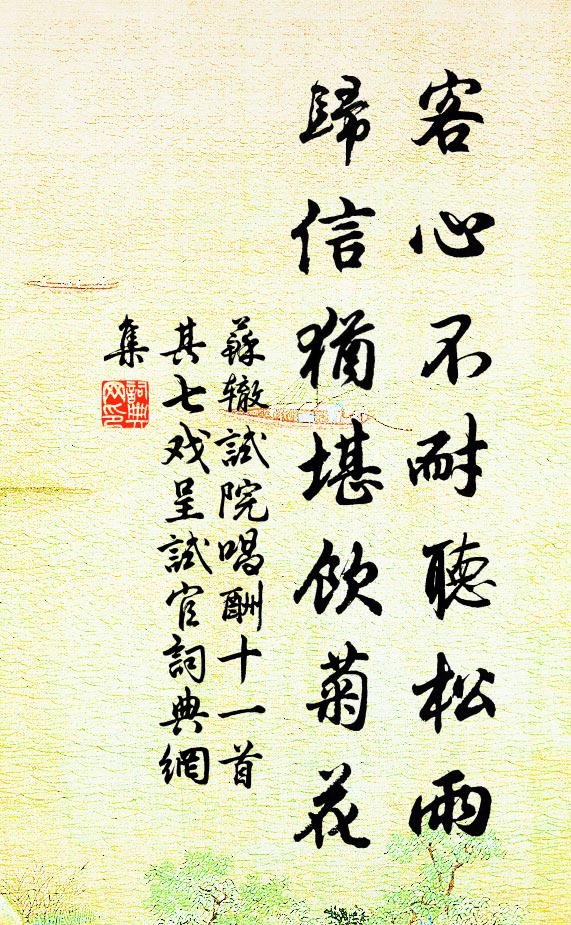 客心不耐聽松雨
歸信猶堪飲菊花
蘇辙試院唱酬十一首
其七戏呈試官詞典網
集
詞典网印